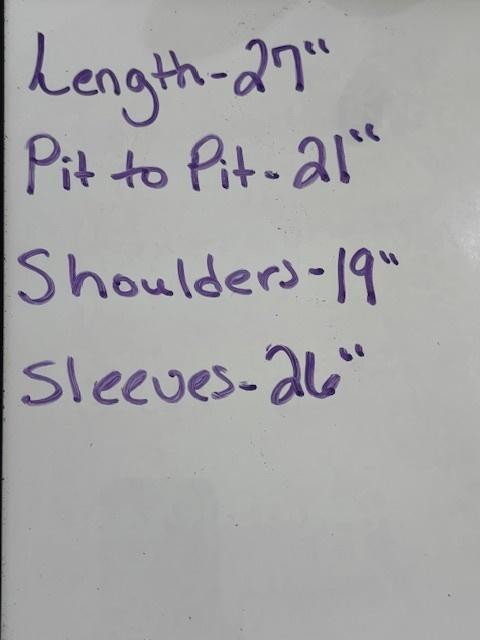 Length-27"
Pit to Pit-21"
Shoulders-19"
Sleeves-26"